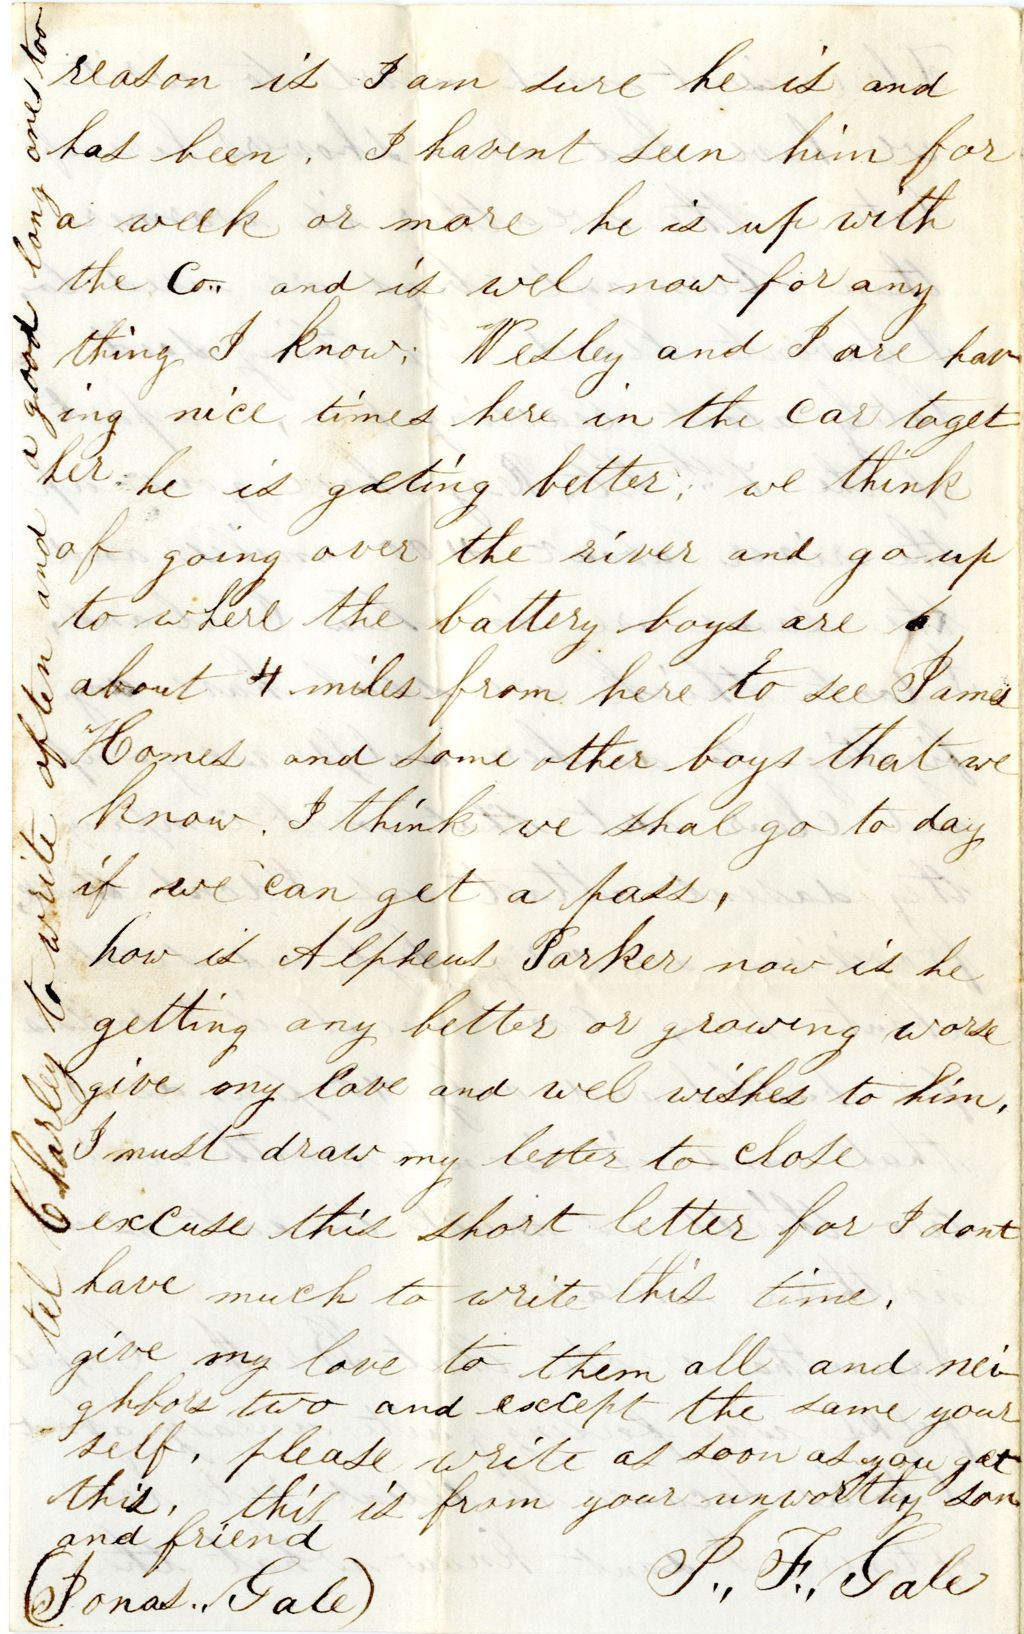 reason is I am sure he is and
has been. I havent seen him for
a week or more he is up with
the Co.. and is wel now for any
thing I know; Wesley and I are hav
ing nice times here in the car toget
her. he is geting better; we think
of going over the river and go up
to where the battery boys are
about 4 miles from here to see James
Homes and some other boys that we
know. I think we shal go to day
if we can get a pass,
how is Alpheus Parker now is he
getting any better or growing worse
give my love and wel wishes to him.
I must draw my letter to close
excuse this short letter for I dont
have much to write this time.
give my love to them all and nei-
ghbors two and except the same your
self. please write as soon as you get
this. this is from your unworthy son
and friend
J., F., Gale
(Jonas., Gale)
tel Charley to write often and a good long ones too